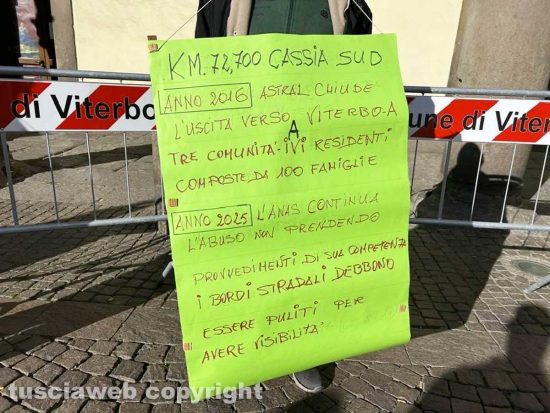 KM. 72,700 CASSIA SUD
ANNO 2016 ASTRAL CHIUDE
L'USCITA VERSO VITERBO-A
A
TRE COMUNITA' IVI RESIDENTI
COMPOSTE DA 100 FAMIGLIE
ANNO 2025 L'ANAS CONTINUA
L'ABUSO NON PRENDENDO
PROVVEDIMENTI DI SUA COMPETENZA
I BORDI STRADALI DEBBONO
ESSERE PULITI PER
AVERE VISIBILITA'
di Viterbo
une di Viter
tusciaweb copyright